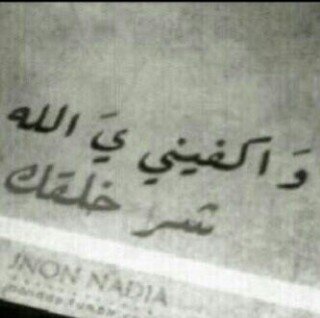 وَ اكفيني يَ الله
شر خلقك
JNON NADIA